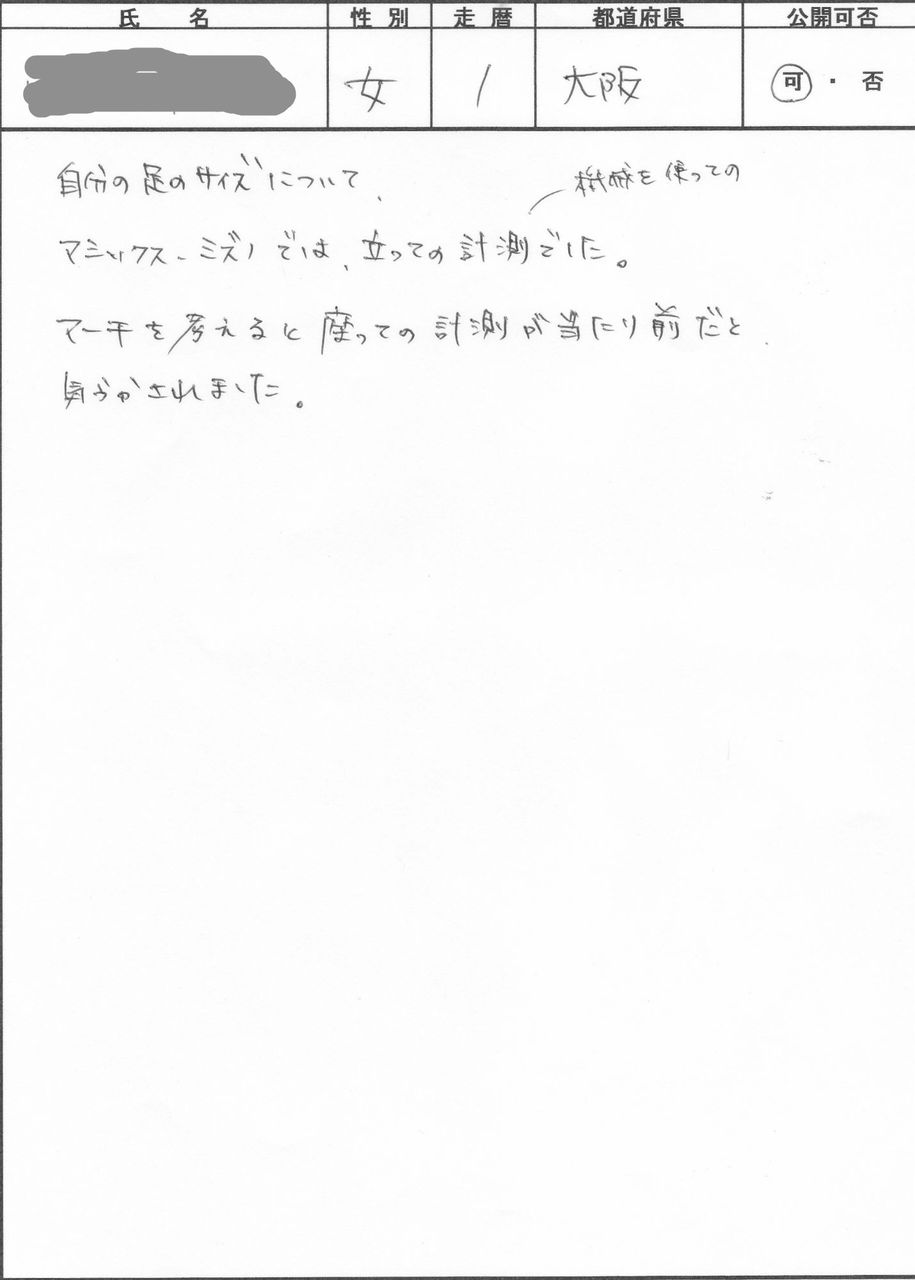 氏 名 性別 走暦 都道府県 公開可否
女 1 大阪 可・否
自分の足のサイズについて、
機械を使っての
アシックス、ミズノでは、立っての計測でした。
アーチを考えると座っての計測が当たり前だと、
気づかされました。